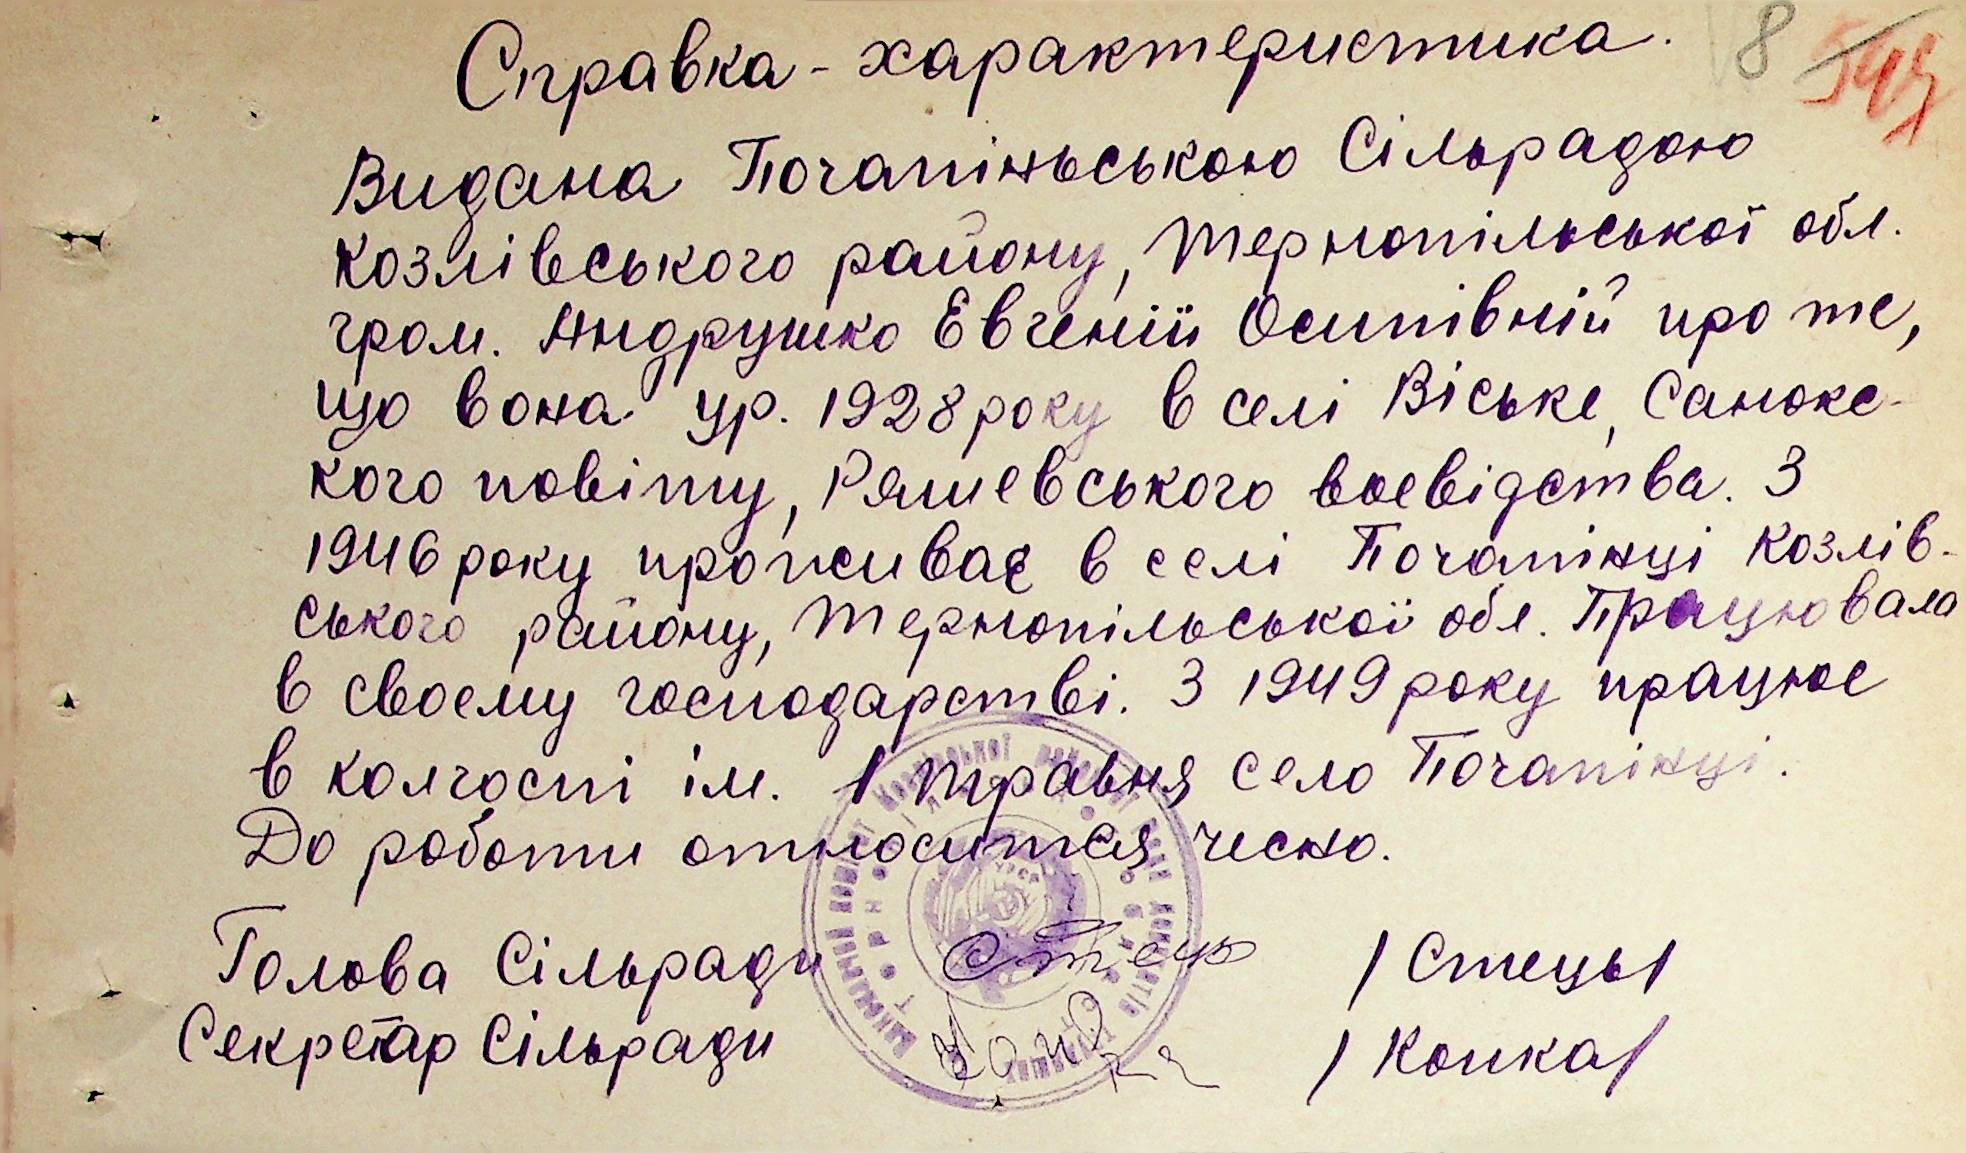 Справка - характеристика.
8 549
Видана Почапіньською Сільрадою
Козлівського району, Тернопільської обл.
гром. Андрушко Евгенії Осипівній про те,
що вона ур. 1928 року в селі Віське, Санокс-
кого повіту, Ряшевського воєвідства. З
1946 року проживає в селі Почапінці Козлів-
ського району, Тернопільської обл. Працювала
в своєму господарстві. З 1949 року працює
в колгоспі ім. 1 травня село Почапінці.
До роботи относится чесно.
Голова Сільради Стець /Стець/
Секретар Сільради /Копка/